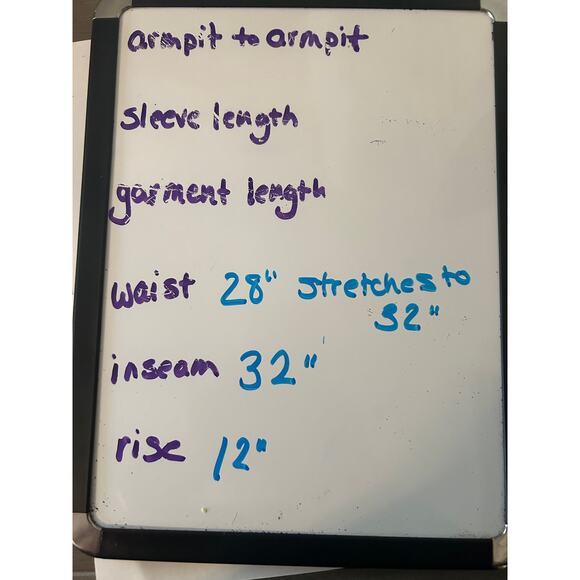 armpit to armpit
sleeve length
garment length
waist 28" stretches to
32"
inseam 32"
rise 12"